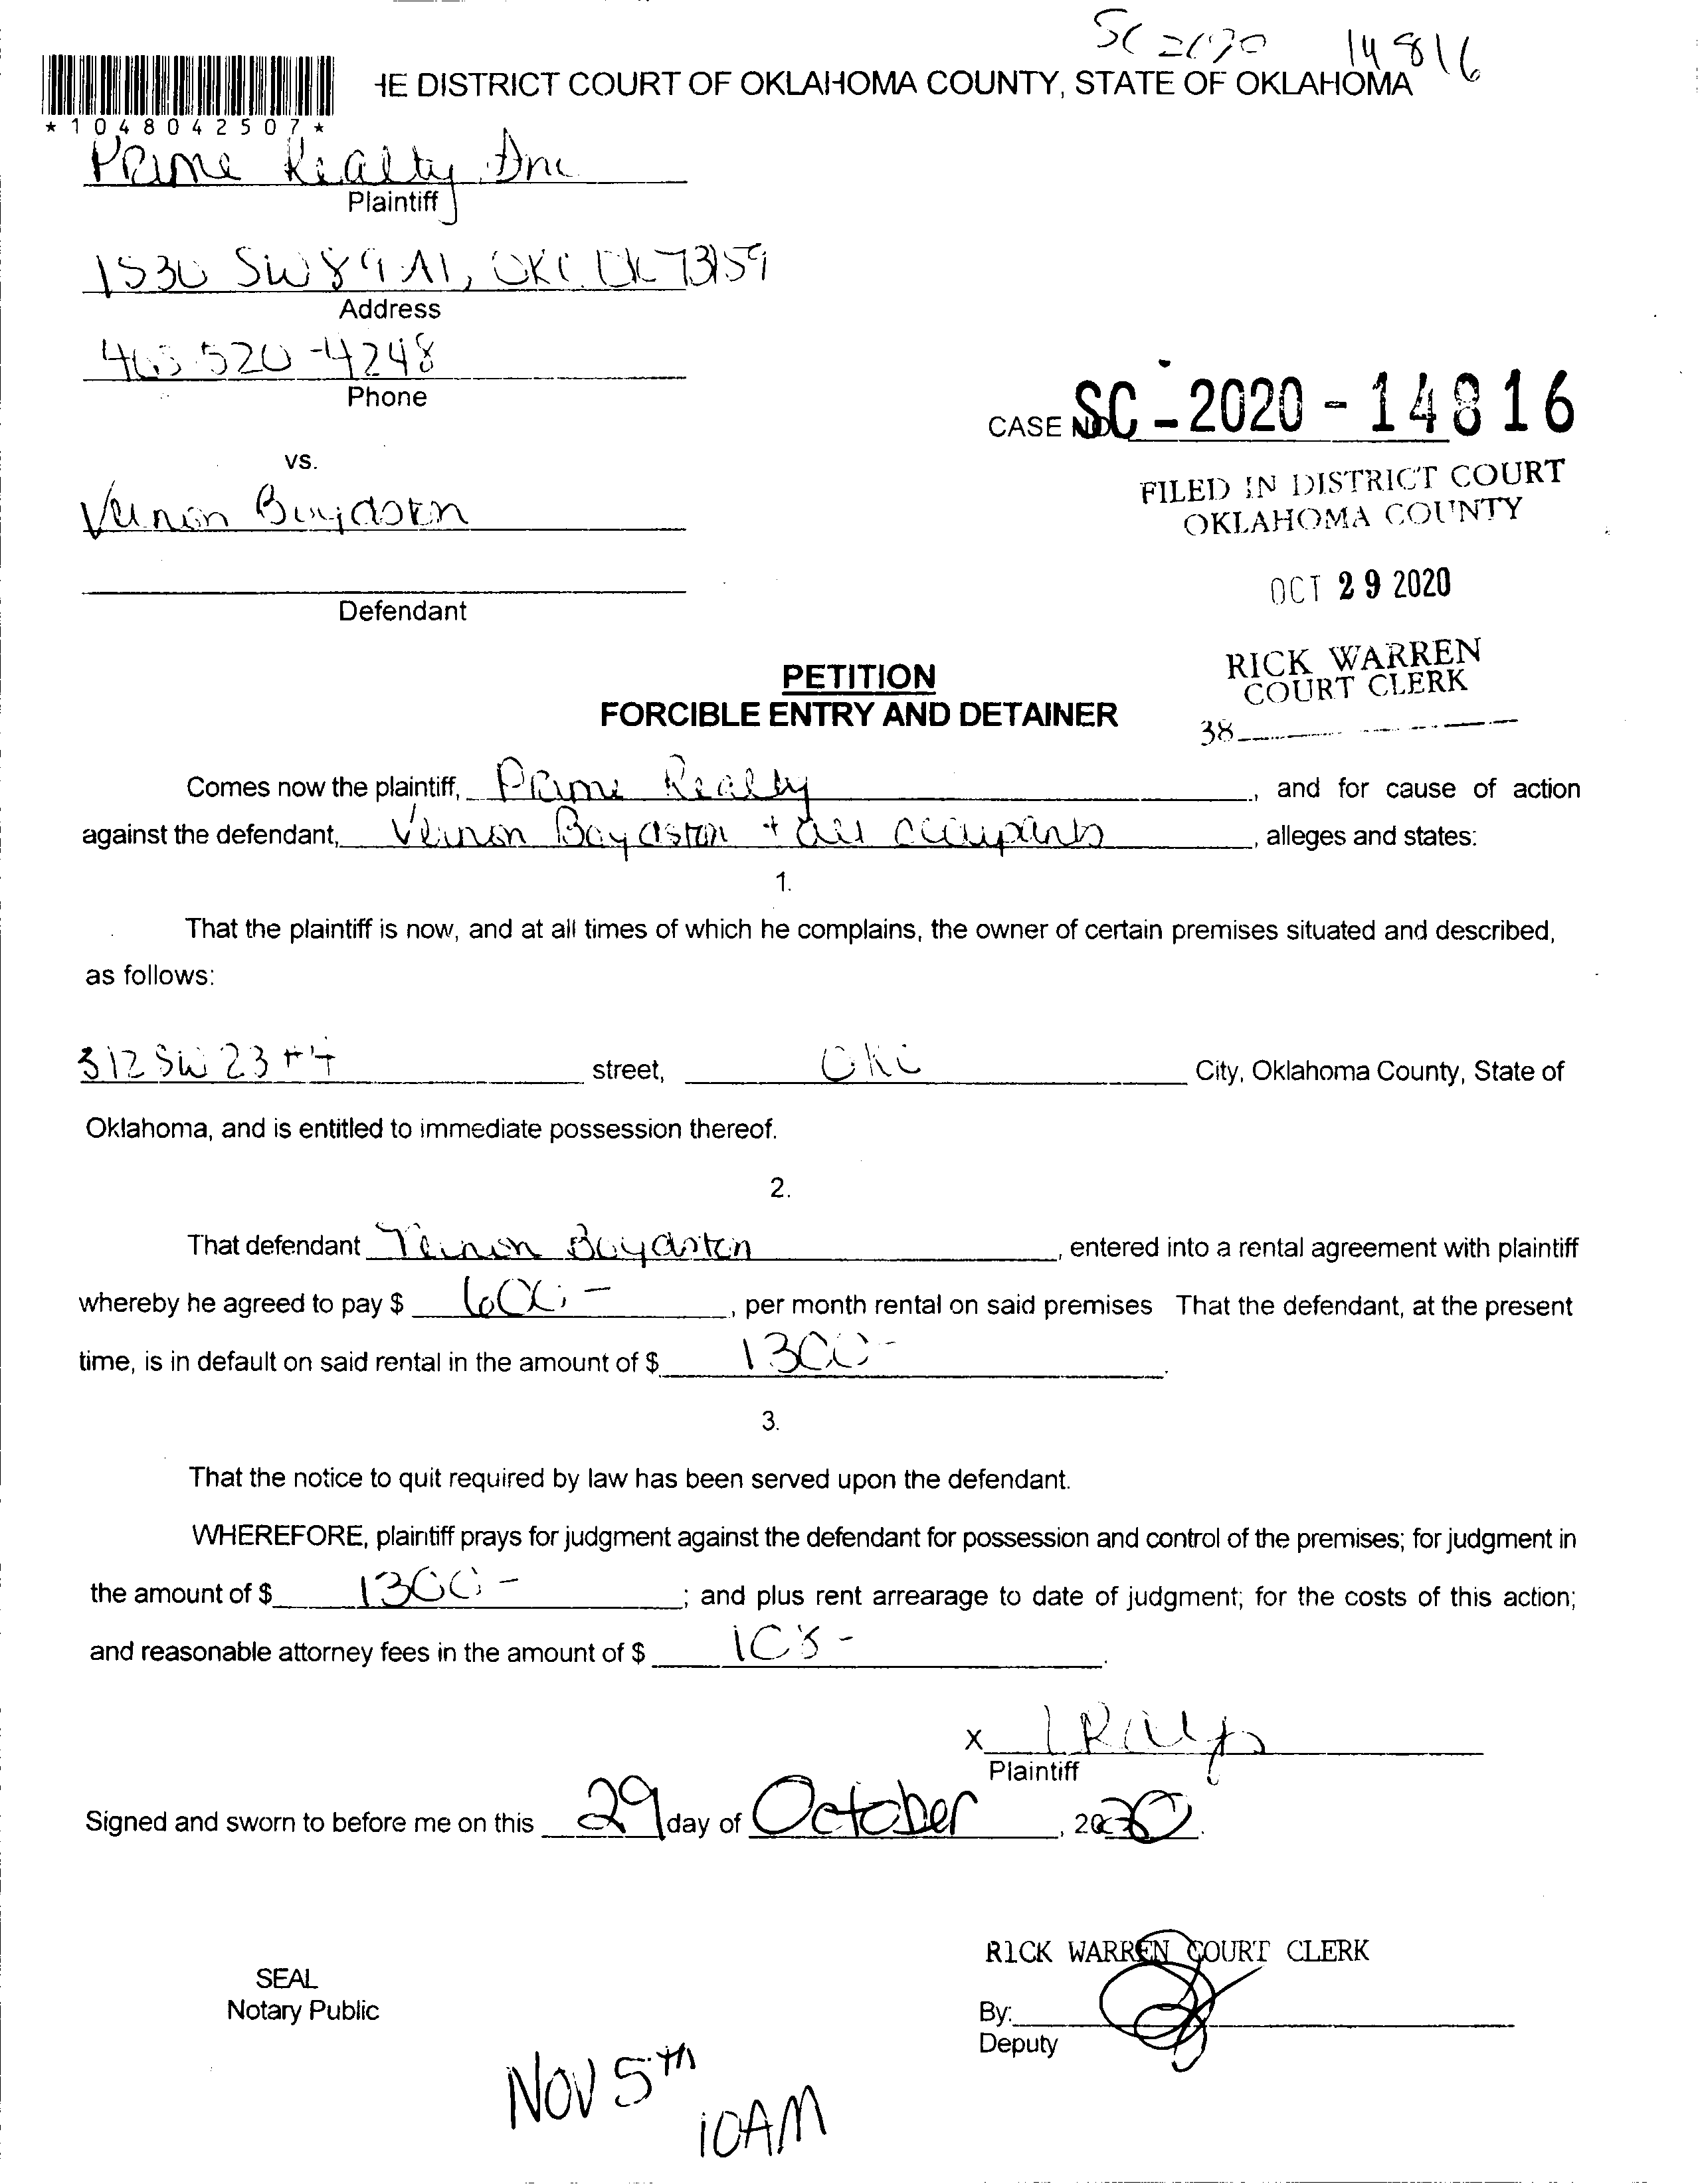 SC 2020 14816
HE DISTRICT COURT OF OKLAHOMA COUNTY, STATE OF OKLAHOMA
*1048042507*
Prime Realty Inc
Plaintiff
1530 SW 89 , OKC OK 73159
Address
405 520-4248
Phone
CASE NO. SC-2020-14816
vs.
FILED IN DISTRICT COURT
OKLAHOMA COUNTY
Vernon Boydston
OCT 29 2020
Defendant
RICK WARREN
COURT CLERK
38
PETITION
FORCIBLE ENTRY AND DETAINER
Comes now the plaintiff, Prime Realty, and for cause of action
against the defendant, Vernon Boydston + all occupants, alleges and states:
1.
That the plaintiff is now, and at all times of which he complains, the owner of certain premises situated and described,
as follows:
312 SW 23 street, OKC City, Oklahoma County, State of
Oklahoma, and is entitled to immediate possession thereof.
2.
That defendant Vernon Boydston, entered into a rental agreement with plaintiff
whereby he agreed to pay $ 600-, per month rental on said premises That the defendant, at the present
time, is in default on said rental in the amount of $ 1300-.
3.
That the notice to quit required by law has been served upon the defendant.
WHEREFORE, plaintiff prays for judgment against the defendant for possession and control of the premises; for judgment in
the amount of $ 1300-; and plus rent arrearage to date of judgment; for the costs of this action;
and reasonable attorney fees in the amount of $ 108-.
X
Plaintiff
Signed and sworn to before me on this 29 day of October, 2020.
RICK WARREN COURT CLERK
SEAL
Notary Public
By:
Deputy
NOV 5th
10AM